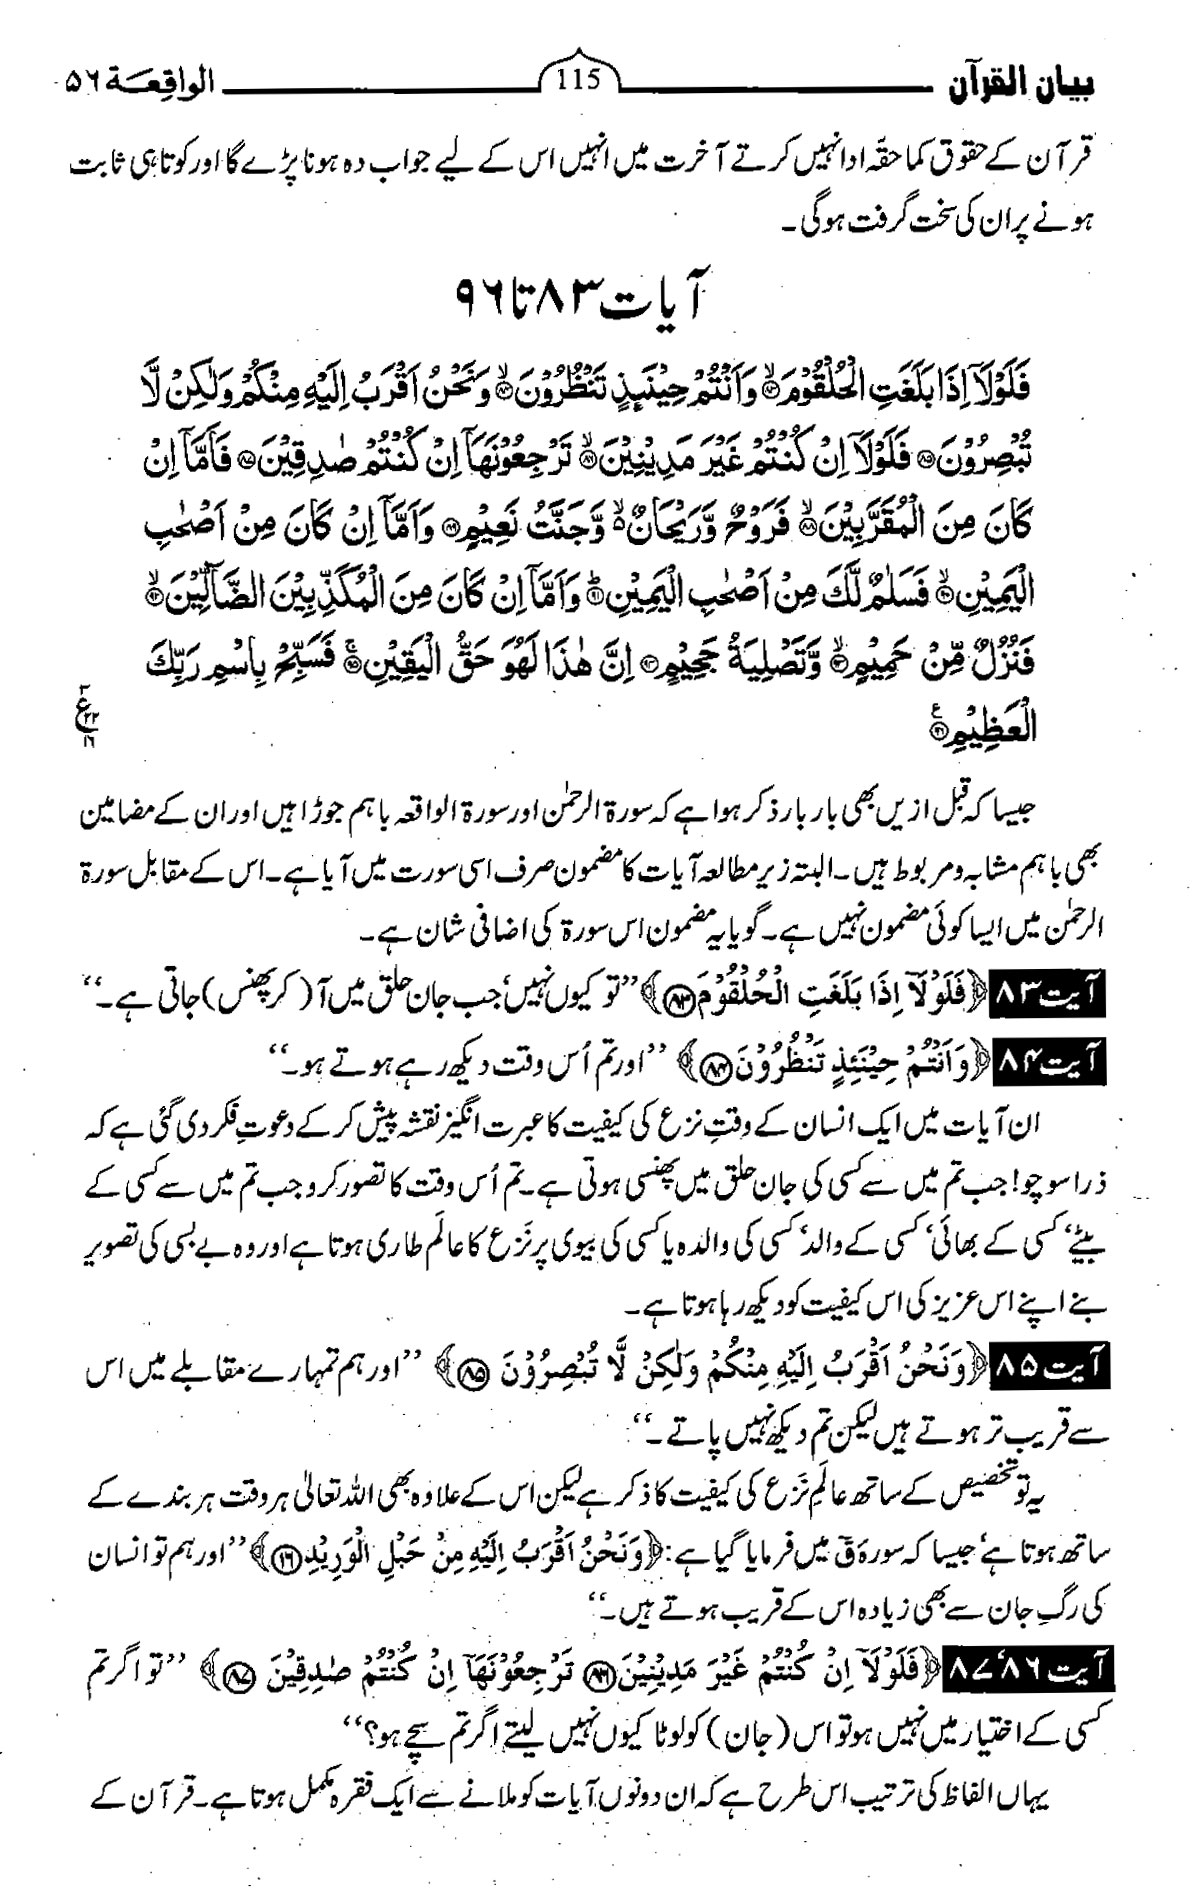 بیان القرآن 115 الواقعة ۵۶
قرآن کے حقوق کما حقہٗ ادا نہیں کرتے آخرت میں انہیں اس کے لیے جواب دہ ہونا پڑے گا اور کوتاہی ثابت
ہونے پر ان کی سخت گرفت ہو گی۔
آیات ۸۳ تا ۹۶
فَلَوْلَاۤ اِذَا بَلَغَتِ الْحُلْقُوْمَ ۙ﴿۸۳﴾ وَاَنْتُمْ حِیْنَىِٕذٍ تَنْظُرُوْنَ ۙ﴿۸۴﴾ وَنَحْنُ اَقْرَبُ اِلَیْهِ مِنْكُمْ وَلٰكِنْ لَّا
تُبْصِرُوْنَ ﴿۸۵﴾ فَلَوْلَاۤ اِنْ كُنْتُمْ غَیْرَ مَدِیْنِیْنَ ۙ﴿۸۶﴾ تَرْجِعُوْنَهَاۤ اِنْ كُنْتُمْ صٰدِقِیْنَ ﴿۸۷﴾ فَاَمَّاۤ اِنْ
كَانَ مِنَ الْمُقَرَّبِیْنَ ۙ﴿۸۸﴾ فَرَوْحٌ وَّرَیْحَانٌ ۙ۬ وَّجَنَّتُ نَعِیْمٍ ﴿۸۹﴾ وَاَمَّاۤ اِنْ كَانَ مِنْ اَصْحٰبِ
الْیَمِیْنِ ۙ﴿۹۰﴾ فَسَلٰمٌ لَّكَ مِنْ اَصْحٰبِ الْیَمِیْنِ ؕ﴿۹۱﴾ وَاَمَّاۤ اِنْ كَانَ مِنَ الْمُكَذِّبِیْنَ الضَّآلِّیْنَ ۙ﴿۹۲﴾
فَنُزُلٌ مِّنْ حَمِیْمٍ ۙ﴿۹۳﴾ وَّتَصْلِیَةُ جَحِیْمٍ ﴿۹۴﴾ اِنَّ هٰذَا لَهُوَ حَقُّ الْیَقِیْنِ ۚ﴿۹۵﴾ فَسَبِّحْ بِاسْمِ رَبِّكَ
الْعَظِیْمِ ﴿۹۶﴾ ۧ
۳ ع ۲۲ ۱۶
جیسا کہ قبل ازیں بھی بار بار ذکر ہوا ہے کہ سورۃ الرحمٰن اور سورۃ الواقعہ باہم جوڑا ہیں اور ان کے مضامین
بھی باہم مشابہ و مربوط ہیں۔ البتہ زیر مطالعہ آیات کا مضمون صرف اسی سورت میں آیا ہے۔ اس کے مقابل سورۃ
الرحمٰن میں ایسا کوئی مضمون نہیں ہے۔ گویا یہ مضمون اس سورۃ کی اضافی شان ہے۔
آیت ۸۳ ﴿فَلَوْلَاۤ اِذَا بَلَغَتِ الْحُلْقُوْمَ ﴿۸۳﴾﴾ ’’تو کیوں نہیں‘ جب جان حلق میں آ (کر پھنس) جاتی ہے۔‘‘
آیت ۸۴ ﴿وَاَنْتُمْ حِیْنَئِذٍ تَنْظُرُوْنَ ﴿۸۴﴾﴾ ’’اور تم اُس وقت دیکھ رہے ہوتے ہو۔‘‘
ان آیات میں ایک انسان کے وقتِ نزع کی کیفیت کا عبرت انگیز نقشہ پیش کر کے دعوتِ فکر دی گئی ہے کہ
ذرا سوچو! جب تم میں سے کسی کی جان حلق میں پھنسی ہوتی ہے۔ تم اُس وقت کا تصور کرو جب تم میں سے کسی کے
بیٹے‘ کسی کے بھائی‘ کسی کے والد‘ کسی کی والدہ یا کسی کی بیوی پر نَزع کا عالَم طاری ہوتا ہے اور وہ بے بسی کی تصویر
بنے اپنے اس عزیز کی اس کیفیت کو دیکھ رہا ہوتا ہے۔
آیت ۸۵ ﴿وَنَحْنُ اَقْرَبُ اِلَیْهِ مِنْكُمْ وَلٰكِنْ لَّا تُبْصِرُوْنَ ﴿۸۵﴾﴾ ’’اور ہم تمہارے مقابلے میں اس
سے قریب تر ہوتے ہیں لیکن تم دیکھ نہیں پاتے۔‘‘
یہ تو تخصیص کے ساتھ عالَمِ نَزع کی کیفیت کا ذکر ہے لیکن اس کے علاوہ بھی اللہ تعالیٰ ہر وقت ہر بندے کے
ساتھ ہوتا ہے‘ جیسا کہ سورہ قٓ میں فرمایا گیا ہے: ﴿وَنَحْنُ اَقْرَبُ اِلَیْهِ مِنْ حَبْلِ الْوَرِیْدِ ﴿۱۶﴾﴾ ’’اور ہم تو انسان
کی رگِ جان سے بھی زیادہ اس کے قریب ہوتے ہیں۔‘‘
آیت ۸۶‘ ۸۷ ﴿فَلَوْلَاۤ اِنْ كُنْتُمْ غَیْرَ مَدِیْنِیْنَ ﴿۸۶﴾ تَرْجِعُوْنَهَاۤ اِنْ كُنْتُمْ صٰدِقِیْنَ ﴿۸۷﴾﴾ ’’تو اگر تم
کسی کے اختیار میں نہیں ہو تو اس (جان) کو لوٹا کیوں نہیں لیتے اگر تم سچے ہو؟‘‘
یہاں الفاظ کی ترتیب اس طرح ہے کہ ان دونوں آیات کو ملانے سے ایک فقرہ مکمل ہوتا ہے۔ قرآن کے